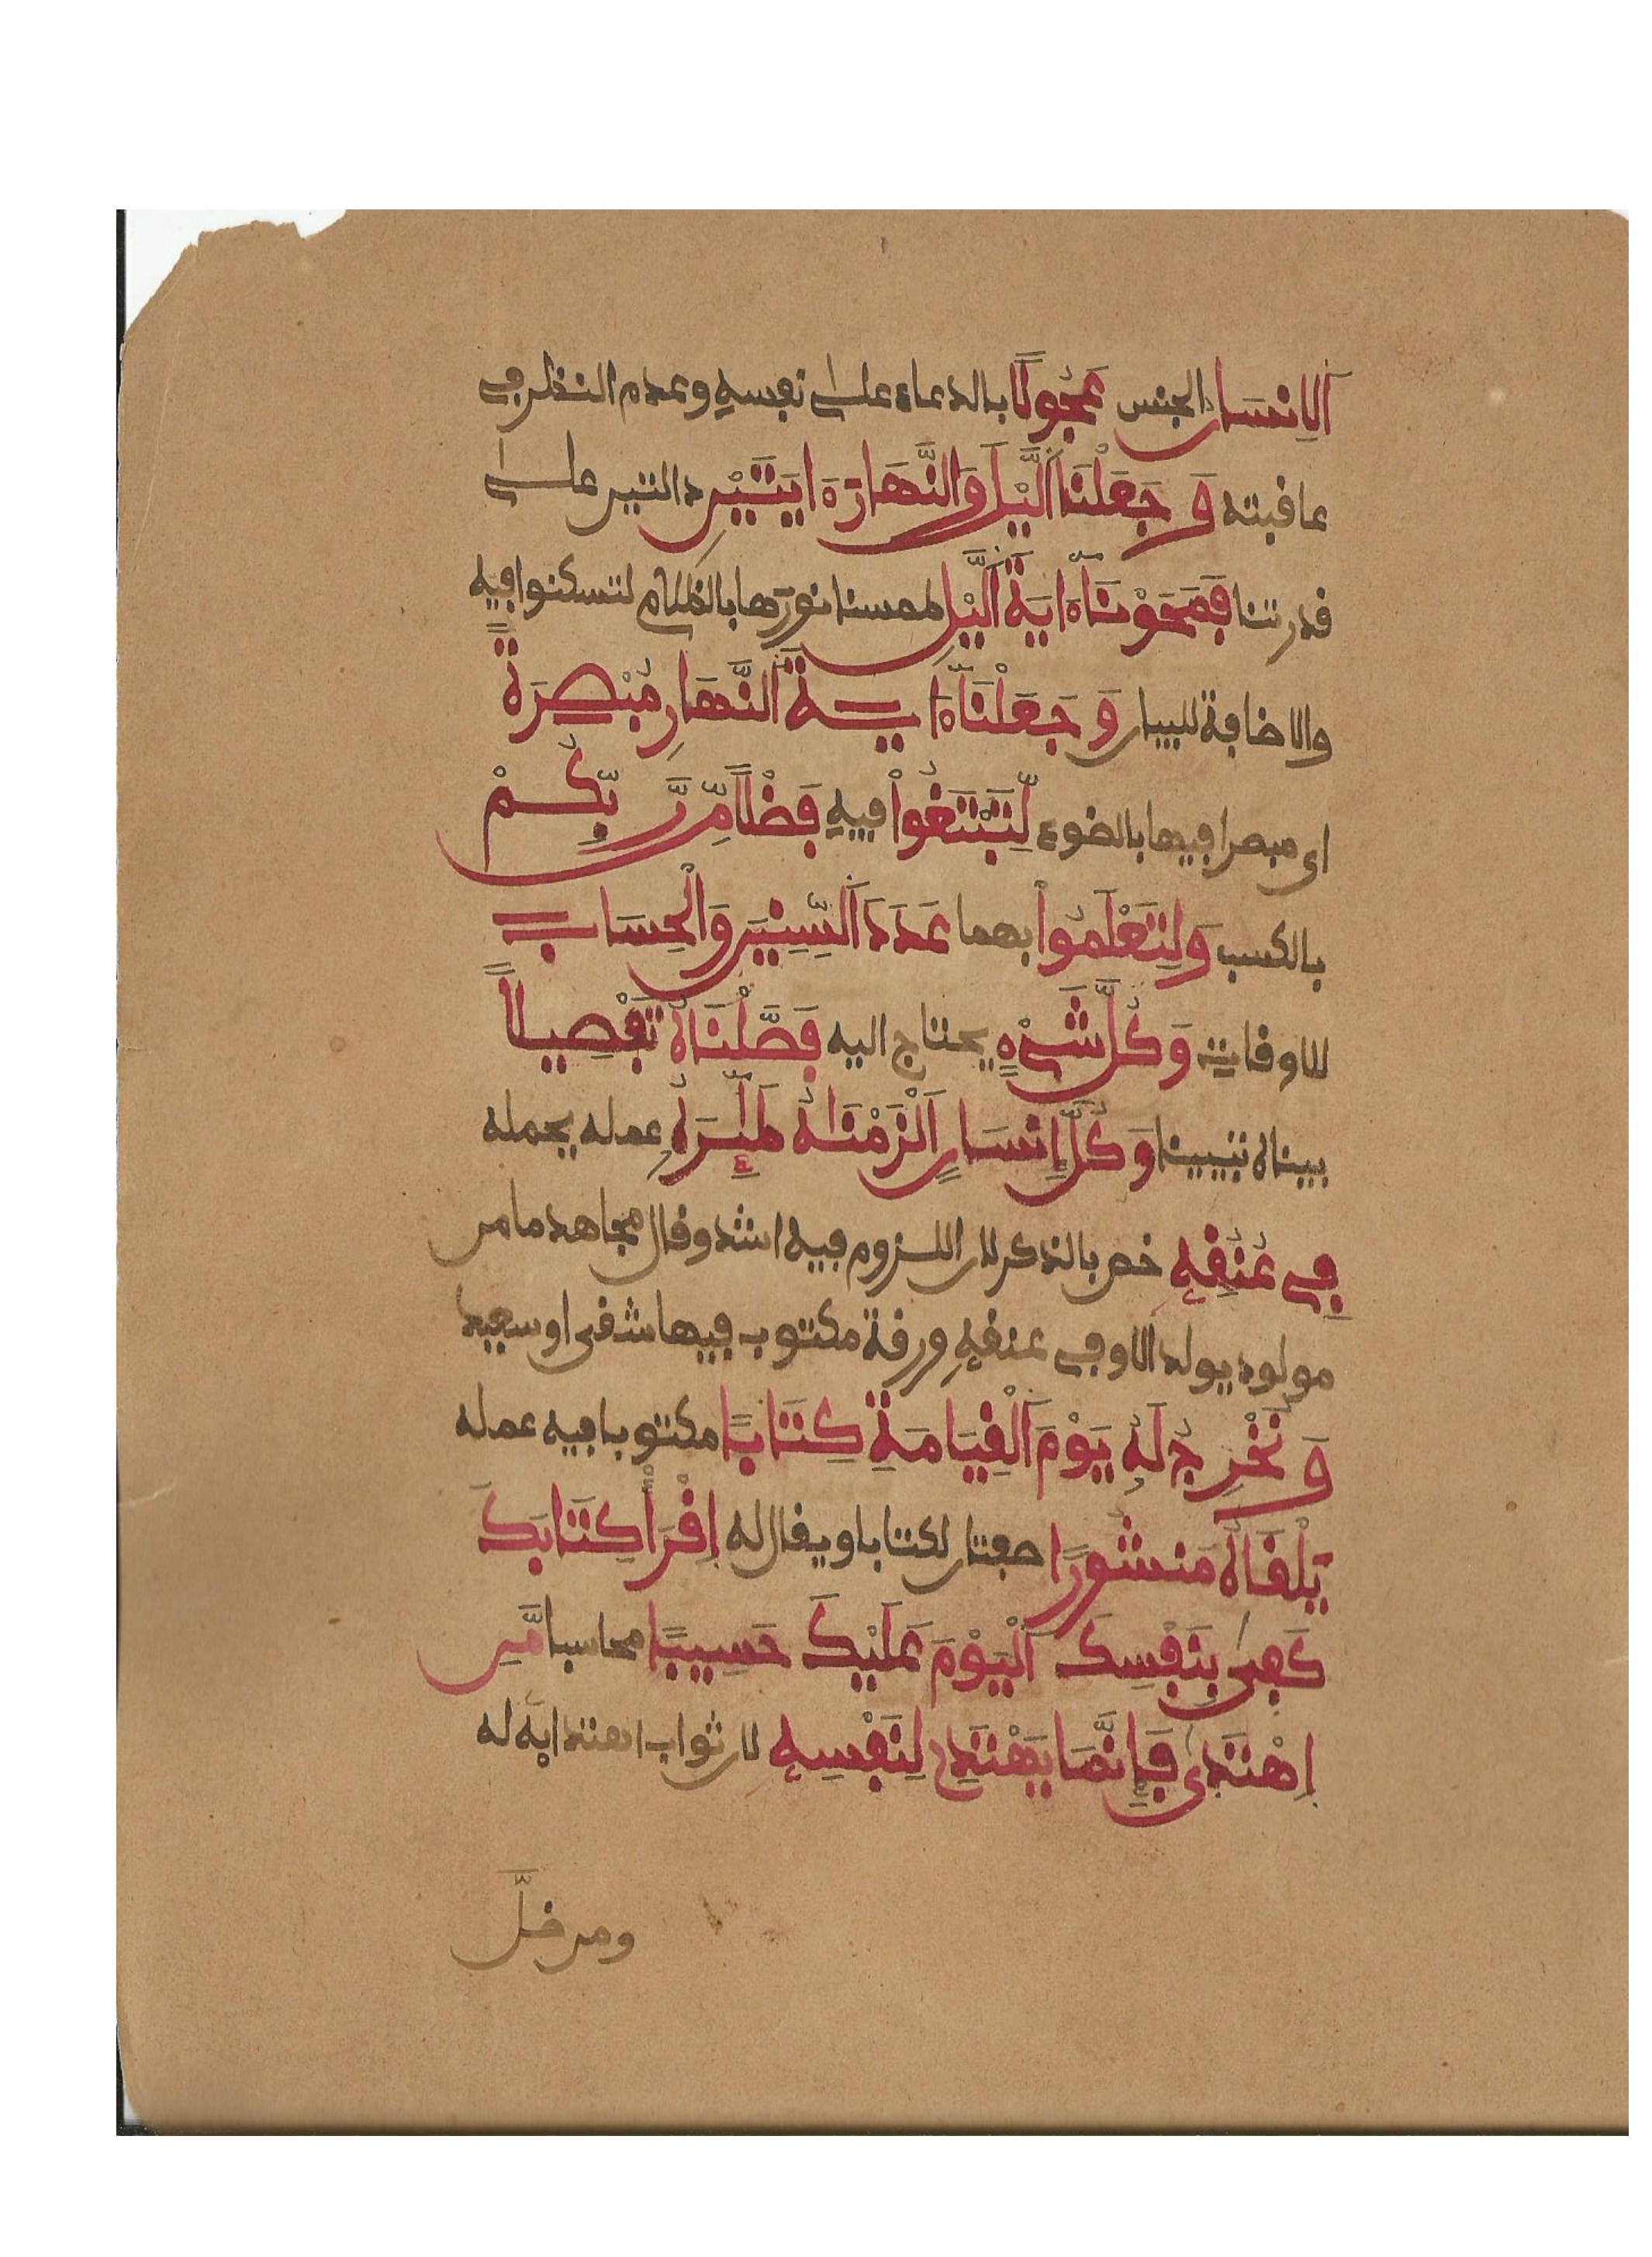 اَلِانسَانُ الجنس عَجُولًا بالدعاء على نفسه وعدم النظر في
عاقبته وَجَعَلْنَا اَلَّيْلَ وَالنَّهَارَ ءَايَتَيْنِ دالتين على
قدرتنا فَمَحَوْنَآ ءَايَةَ اَلَّيْلِ طمسنا نورها بالظلام لتسكنوا فيه
والاضافة للبيان وَجَعَلْنَآ ءَايَةَ اَلنَّهَارِ مُبْصِرَةً
اى مبصرا فيها بالضوء لِّتَبْتَغُواْ فيهِ فَضْلًا مِّن رَّبِّكُمْ
بالكسب وَلِتَعْلَمُواْ بهما عَدَدَ اَلسِّنِينَ وَالْحِسَابَ
للاوقات وَكُلَّ شَىْءٍ يحتاج اليه فَصَّلْنَاهُ تَفْصِيلًا
بيناه تبيينا وَكُلَّ إِنسَانٍ اَلْزَمْنَاهُ طَٰٓئِرَهُ عمله يحمله
فِى عُنُقِهِ خص بالذكر لان اللزوم فيه اشد وقال مجاهد ما من
مولود يولد الا وفى عنقه ورقة مكتوب فيها شقى او سعيد
وَنُخْرِجُ لَهُ يَوْمَ اَلْقِيَامَةِ كِتَابًا مكتوبا فيه عمله
يَلْقَاهُ مَنشُورًا صفتان لكتابا ويقال له اِقْرَأْ كِتَابَكَ
كَفِىٰ بِنَفْسِكَ اَلْيَوْمَ عَلَيْكَ حَسِيبًا محاسبا مَّنِ
اِهْتَدِىٰ فَإِنَّمَا يَهْتَدِى لِنَفْسِهِ لان ثواب اهتدايه له
ومن ضلَّ